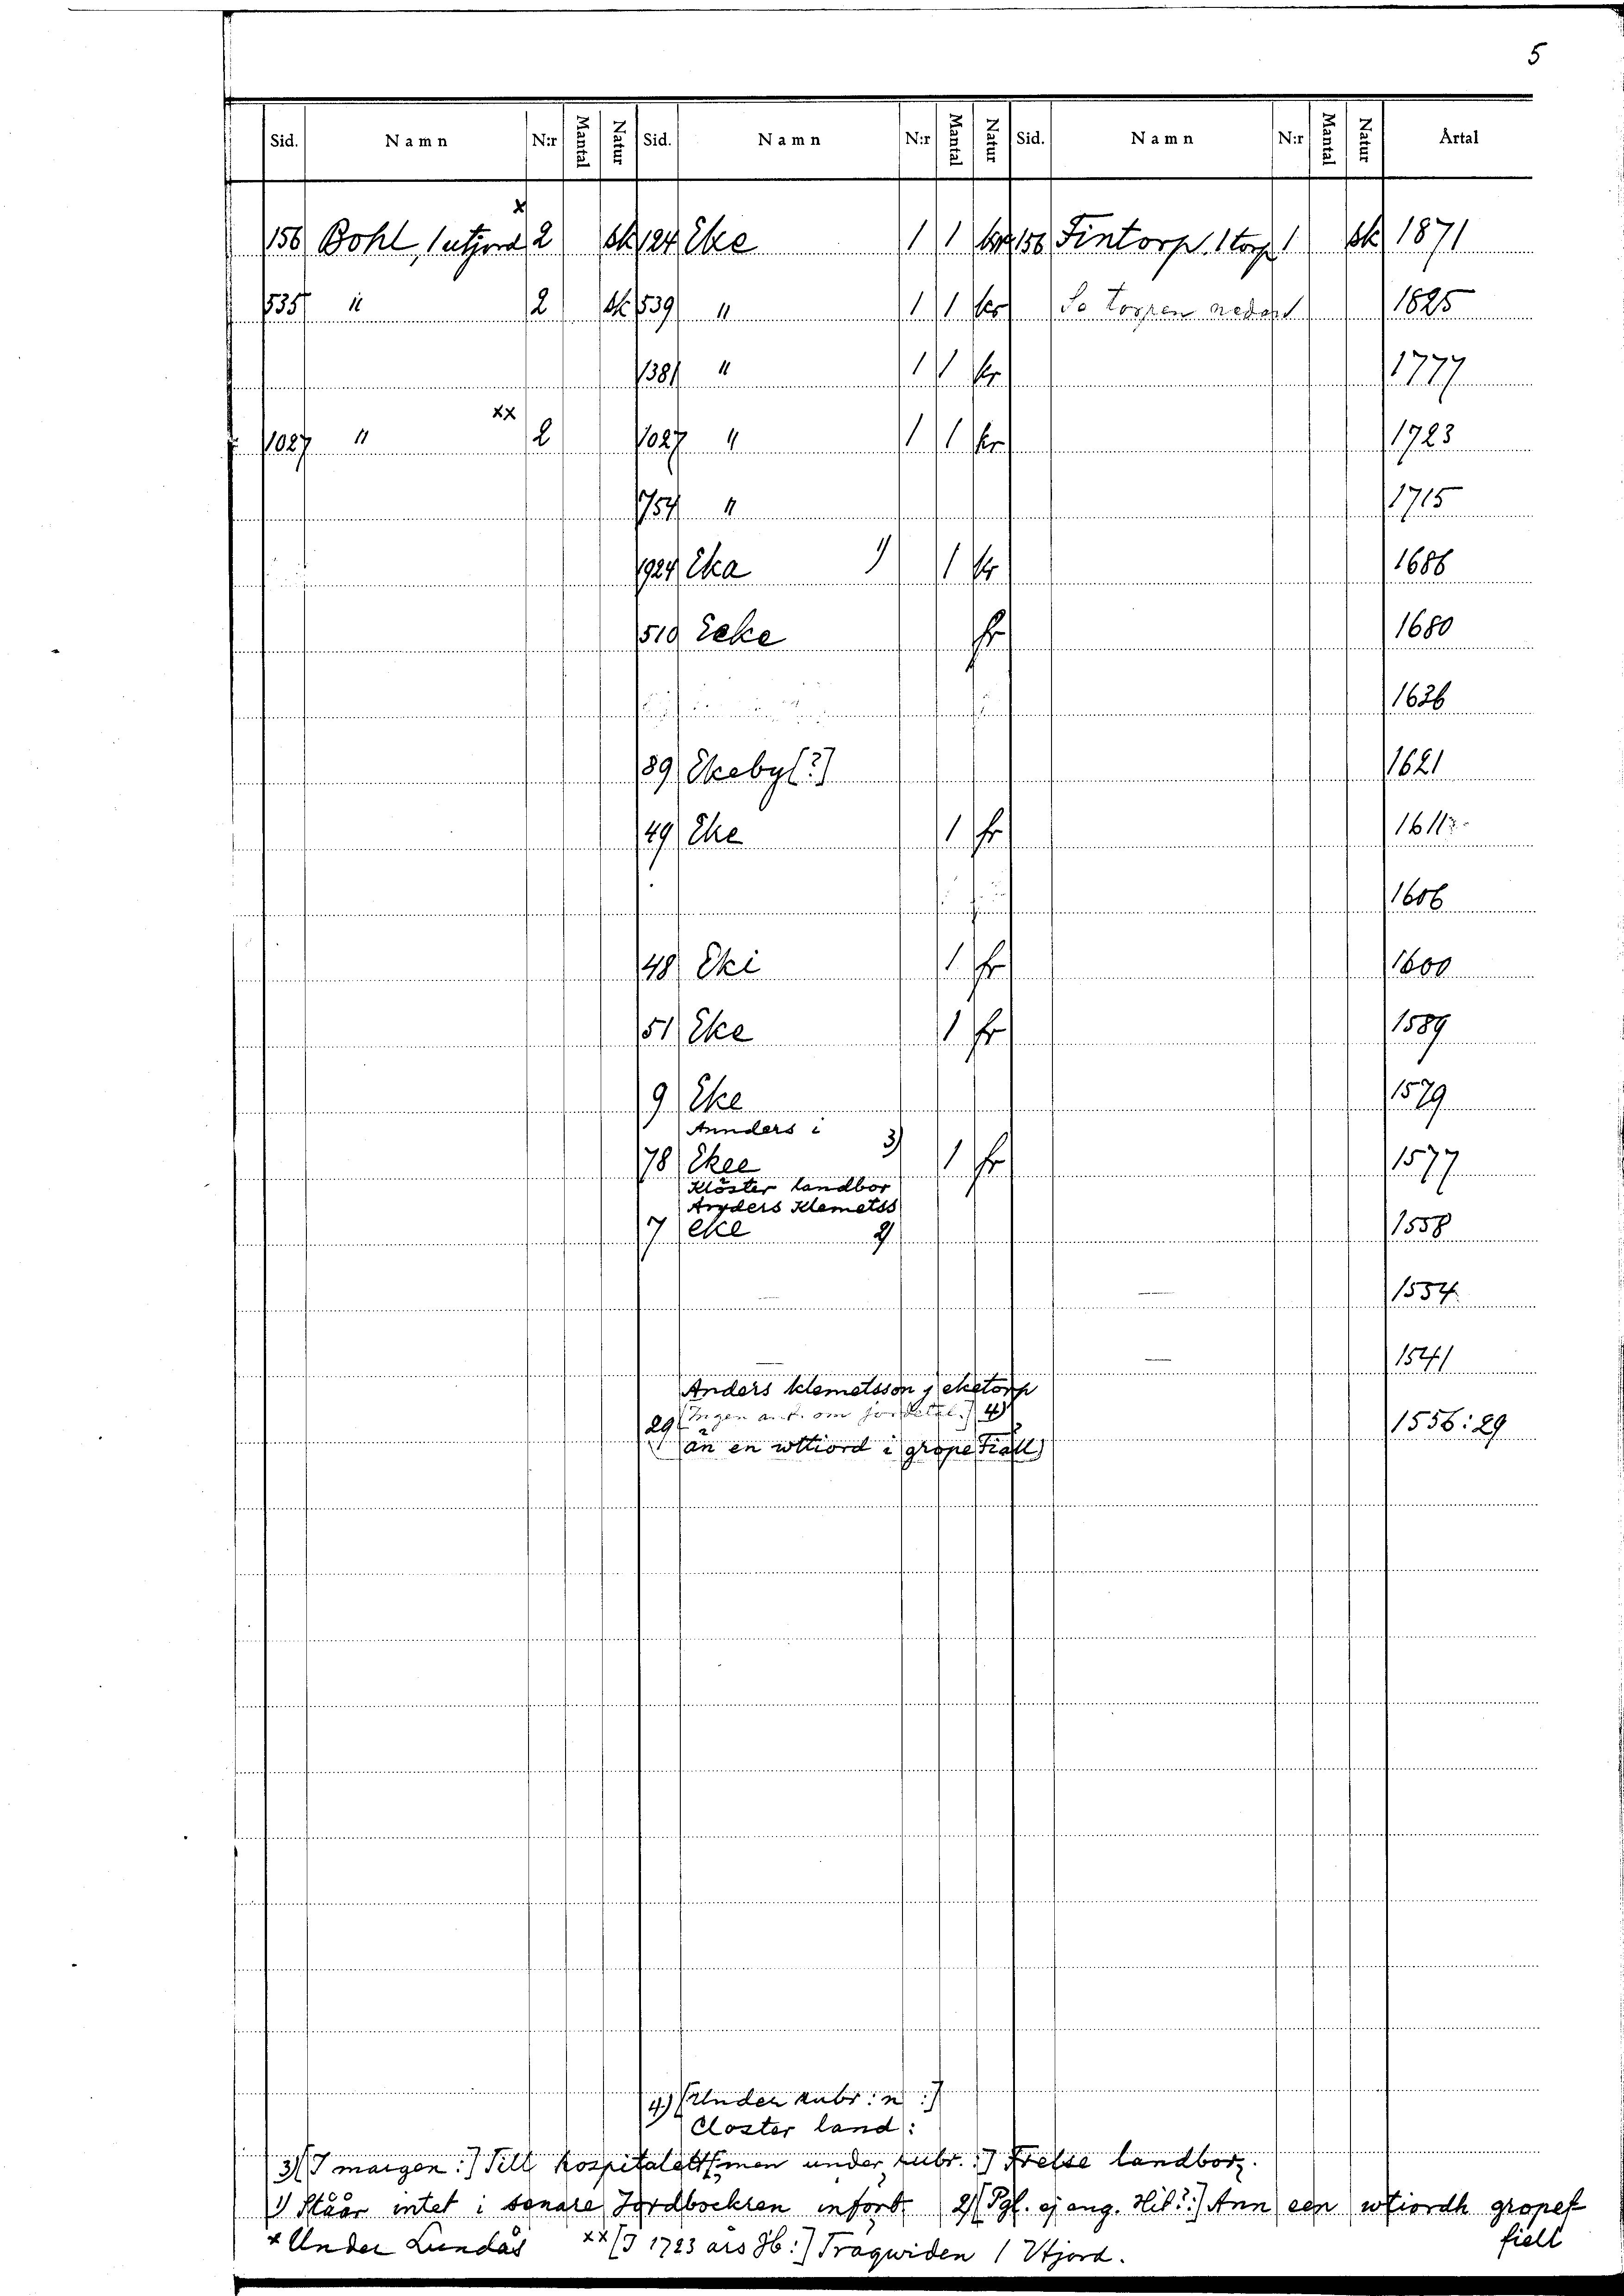 5
Sid. Namn N:r Mantal Natur Sid. Namn N:r Mantal Natur Sid. Namn N:r Mantal Natur Årtal
156 Bohl, 1 utjord x 2 sk 124 Eke 1 1 156 Fintorp. 1 torp 1 sk 1871
535 " 2 sk 539 " 1 1 kr Se torpen nedan 1825
1381 " 1 1 kr 1777
1027 " xx 2 1027 " 1 1 kr 1723
1754 " 1715
1924 Eka 1) 1 kr 1686
510 Eeke fr 1680
1636
89 Ekeby [?] 1621
49 Eke 1 fr 1611
1606
48 Eki 1 fr 1600
51 Eke 1 fr 1589
9 Eke 1579
Annders i
78 Ekee 3) 1 fr 1577
Klöster landbor
Anders Klemetss
7 eke 2) 1558
— — 1554
— — 1541
Anders klemetsson j eketorp
29 [Ingen ant. om jordetal.] 4) 1556:29
än en wttiord i grope Fiäll
4) [Under rubr:n :]
Closter land:
3) [I margen:] Till Hospitalett [men under rubr.:] Frelse landbor.
1) Står intet i senare Jordboekren infört. 2) [Pgl. ej ang. Hit?:] Ann een wtiordh gropef
fiell
x Under Lundås xx [I 1723 års Jb:] Tragwiden 1 Utjord.